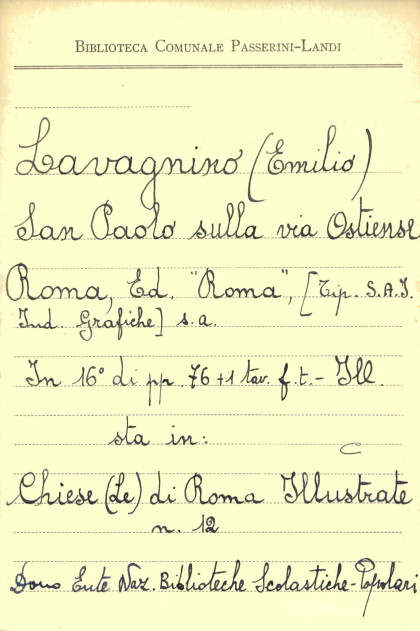 BIBLIOTECA COMUNALE PASSERINI-LANDI
Lavagnino (Emilio)
San Paolo sulla via Ostiense
Roma, Ed. "Roma", [Tip. S.A.I.
Ind. Grafiche] s.a.
In 16° di pp. 76+1 tav. f.t.- Ill.
sta in:
Chiese (Le) di Roma Illustrate
n. 12
Dono Ente Naz. Biblioteche Scolastiche-Popolari